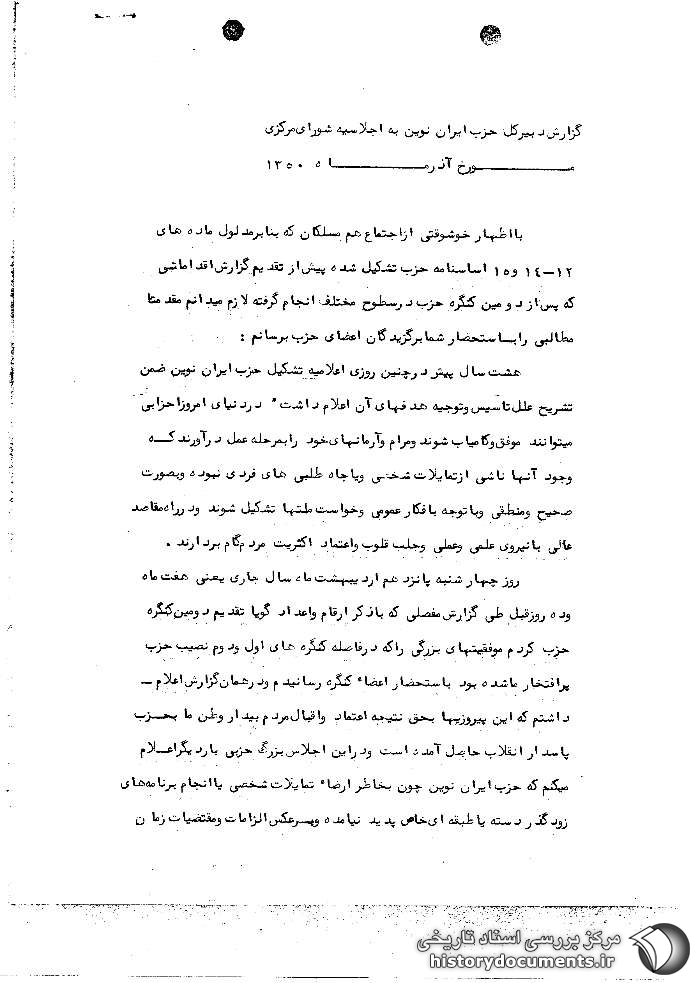 گزارش دبیرکل حزب ایران نوین به اجلاسیه شورای مرکزی
مــورخ آذرمــاه ۱۳۵۰
بااظهار خوشوقتی ازاجتماع هم مسلکان که بنابرمدلول ماده های
۱۲-۱٤ و۱۵ اساسنامه حزب تشکیل شده پیش از تقدیم گزارش اقداماتی
که پس از دومین کنگره حزب درسطوح مختلف انجام گرفته لازم میدانم مقدمتا
مطالبی رابـاستحضار شمابرگزیدگان اعضای حزب برسانم :
هشت سال پیش درچنین روزی اعلامیه تشکیل حزب ایران نوین ضمن
تشریح علل تاسیس وتوجیه هدفهای آن اعلام داشت " دردنیای امروزاحزابی
میتوانند موفق وکامیاب شوند ومرام وآرمانهای خود رابمرحله عمل درآورند کــه
وجود آنها ناشی ازتمایلات شخصی ویاجاه طلبی های فردی نبوده وبصورت
صحیح ومنطقی وباتوجه بافکار عمومی وخواست ملتها تشکیل شوند ودرراه مقاصد
عالی بانیروی علمی وعملی وجلب قلوب واعتماد اکثریت مردم گام بردارند .
روز چهار شنبه پانزدهم اردیبهشت ماه سال جاری یعنی هفت ماه
وده روزقبل طی گزارش مفصلی که باذکر ارقام واعداد گویا تقدیم دومین کنگره
حزب کردم موفقیتهای بزرگی راکه درفاصله کنگره های اول ودوم نصیب حزب
پرافتخار ماشده بود باستحضار اعضاء کنگره رسانیدم ودرهمان گزارش اعلام ــ
داشتم که این پیروزیها بحق نتیجه اعتماد واقبال مردم بیدار وطن ما بحــزب
پاسدار انقلاب حاصل آمده است ودراین اجلاس بزرگ حزبی باردیگراعــلام
میکنم که حزب ایران نوین چون بخاطر ارضاء تمایلات شخصی یاانجام برنامه های
زودگذر دسته یاطبقه ای خاص پدید نیامده وبــرعکس الزامات ومقتضیات زمان
مرکز بررسی اسناد تاریخی
historydocuments.ir